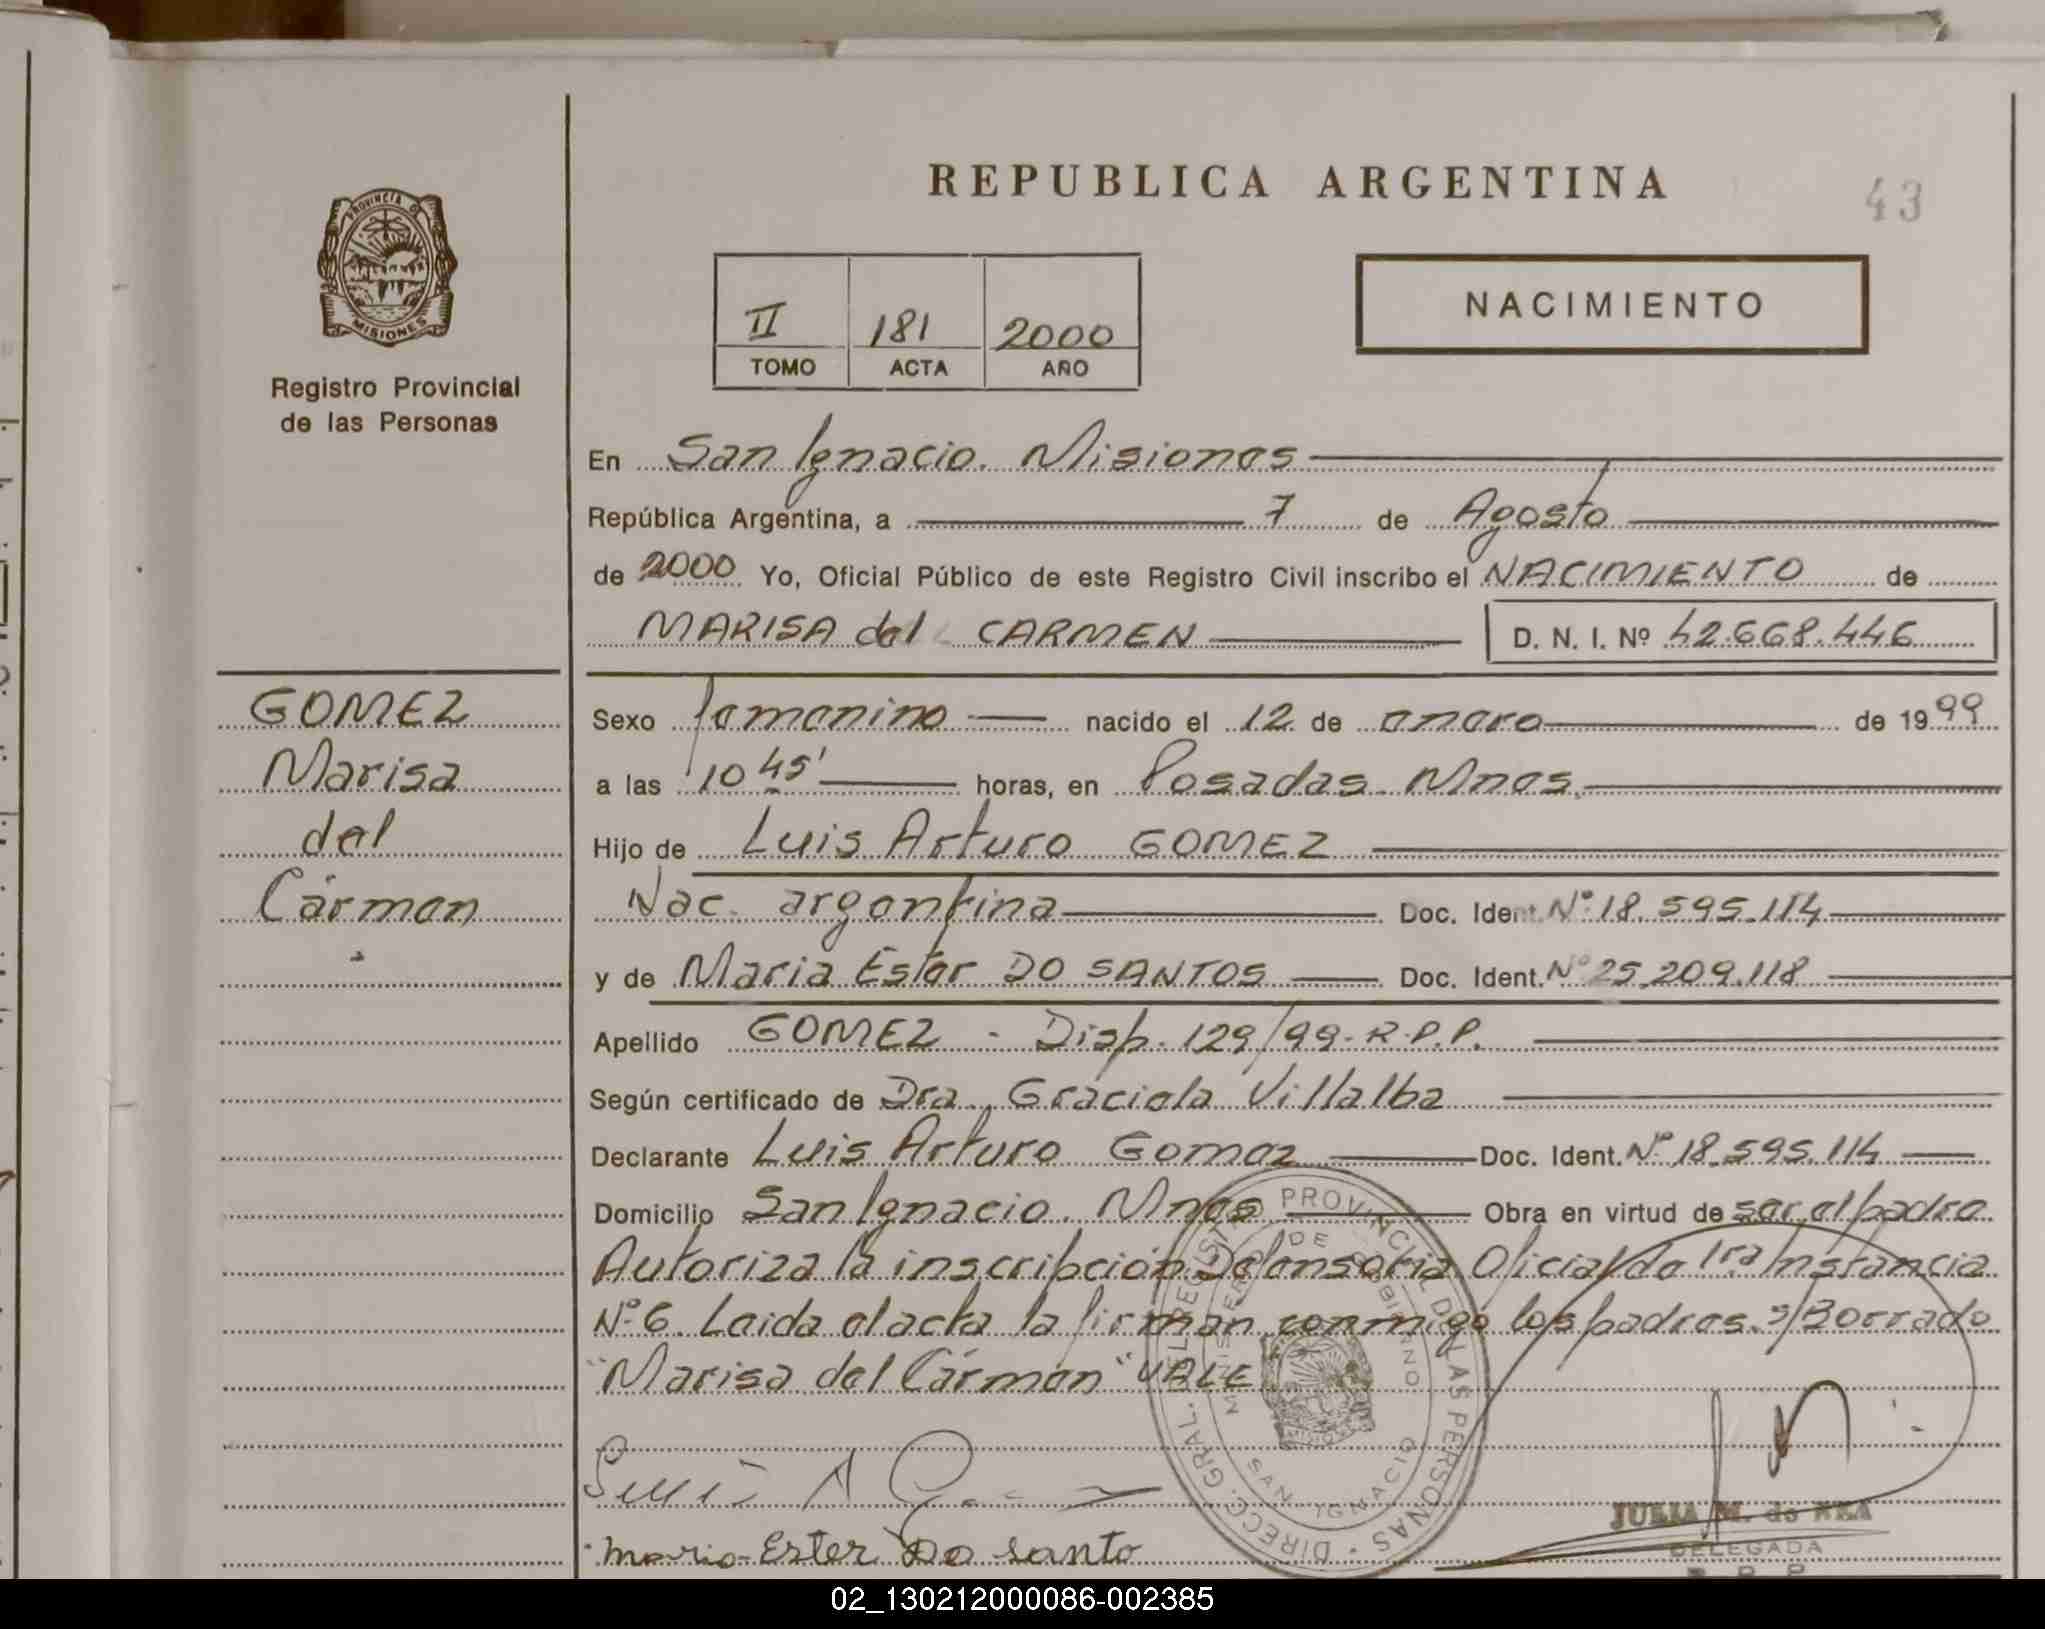 REPUBLICA ARGENTINA
43
PROVINCIA DE
MISIONES
Registro Provincial
de las Personas
II 181 2000
TOMO ACTA AÑO
NACIMIENTO
En San Ignacio. Misiones
República Argentina, a 7 de Agosto
de 2000 Yo, Oficial Público de este Registro Civil inscribo el NACIMIENTO de
MARISA del CARMEN D. N. I. Nº 42.668.446
GOMEZ
Marisa
del
Cármen
Sexo femenino nacido el 12 de enero de 1999
a las 10 45' horas, en Posadas. Mnes.
Hijo de Luis Arturo GOMEZ
Nac. argentina Doc. Ident. Nº 18.595.114
y de Maria Ester DO SANTOS Doc. Ident. Nº 25.209.118
Apellido GOMEZ - Disp. 129/99-R.P.P.
Según certificado de Dra. Graciela Villalba
Declarante Luis Arturo Gomez Doc. Ident. Nº 18.595.114
Domicilio San Ignacio. Mnes Obra en virtud de ser el padre
Autoriza la inscripción Defensoria Oficial de 1ra Instancia
Nº 6. Leida el acta la firman conmigo los padres. s/Borrado
"Marisa del Cármen" VALE
DIRECC. GRAL. DEL REGISTRO PROVINCIAL DE LAS PERSONAS
MINISTERIO DE GOBIERNO
SAN IGNACIO
Maria Ester Do santo
JULIA M. de REA
DELEGADA
R P P
02_130212000086-002385